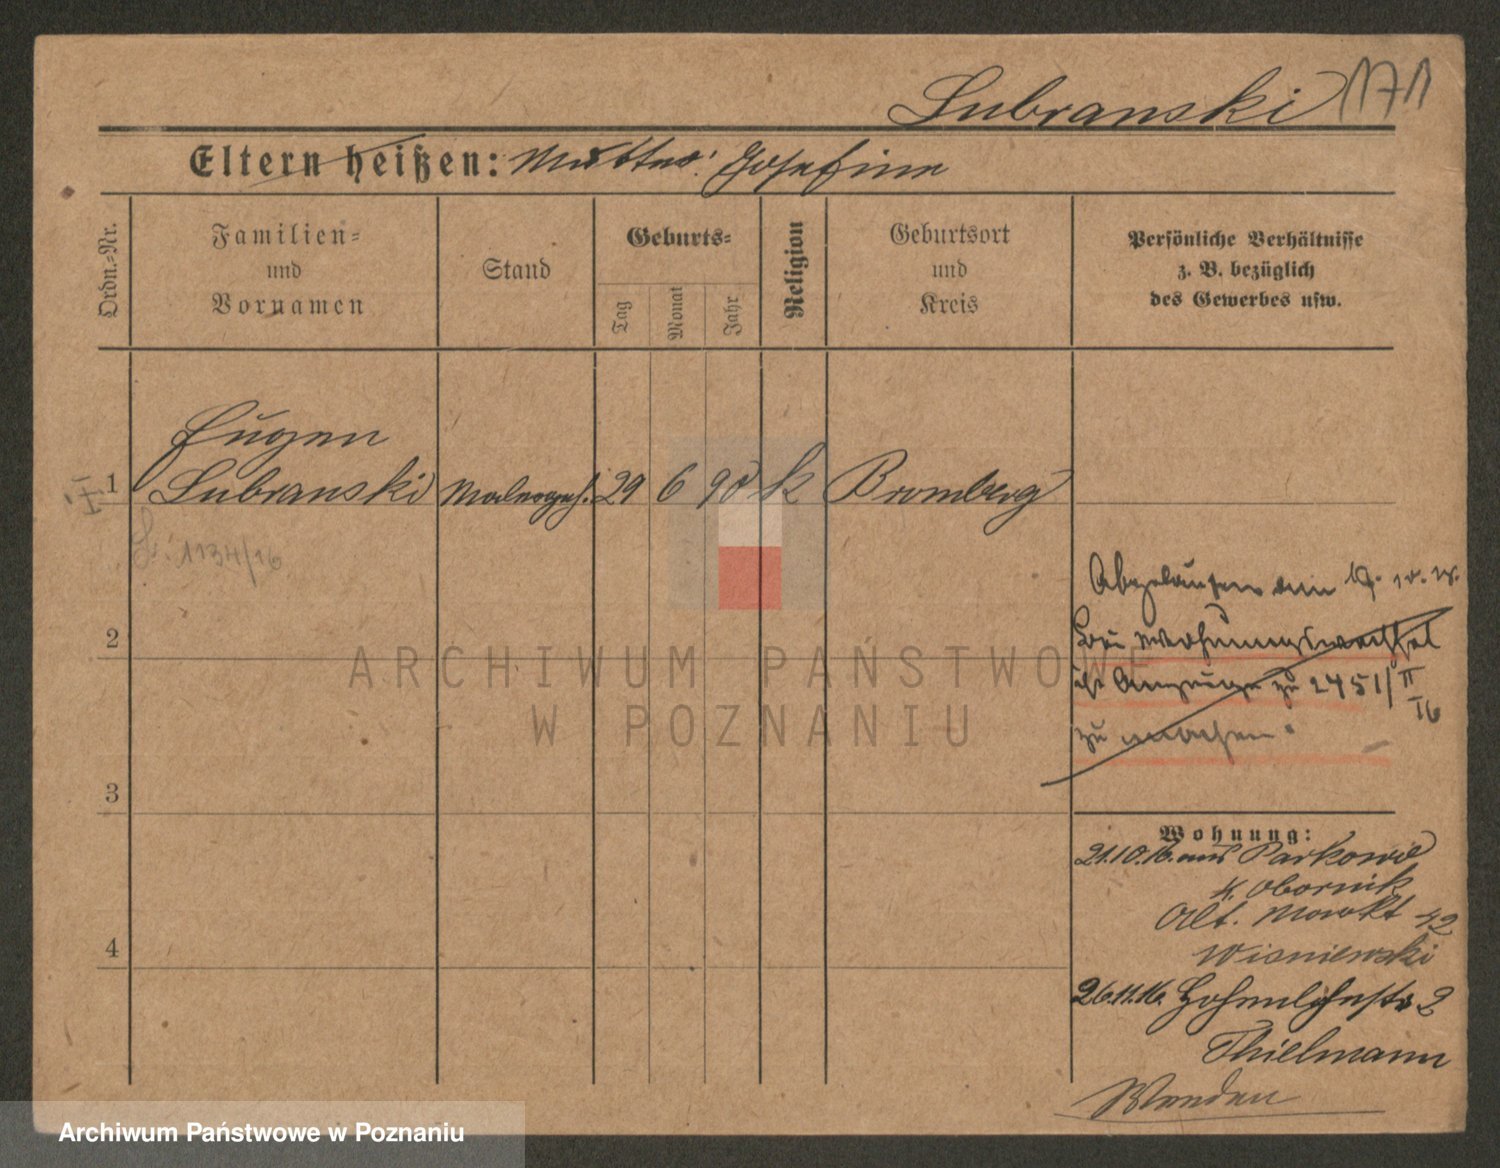 Lubranski 171
Eltern heißen: Mutter: Josefine
Ordn.-Nr.
Familien-
und
Vornamen
Stand
Geburts-
Tag
Monat
Jahr
Religion
Geburtsort
und
Kreis
Persönliche Verhältnisse
z. B. bezüglich
des Gewerbes usw.
Eugen
1 Lubranski Malergeh. 29 6 90 k Bromberg
1134/16
Abgelaufen am
Bei Wohnungswechsel
ist Anzeige zu 2451/II
16
zu machen.
2
3
4
Wohnung:
21.10.16. aus Parkowo
K. Obornik
Alt. Markt 42
Wisniewski
26.11.16. Hohenlohestr 2
Thielmann
Wenden
ARCHIWUM PAŃSTWOWE
W POZNANIU
Archiwum Państwowe w Poznaniu